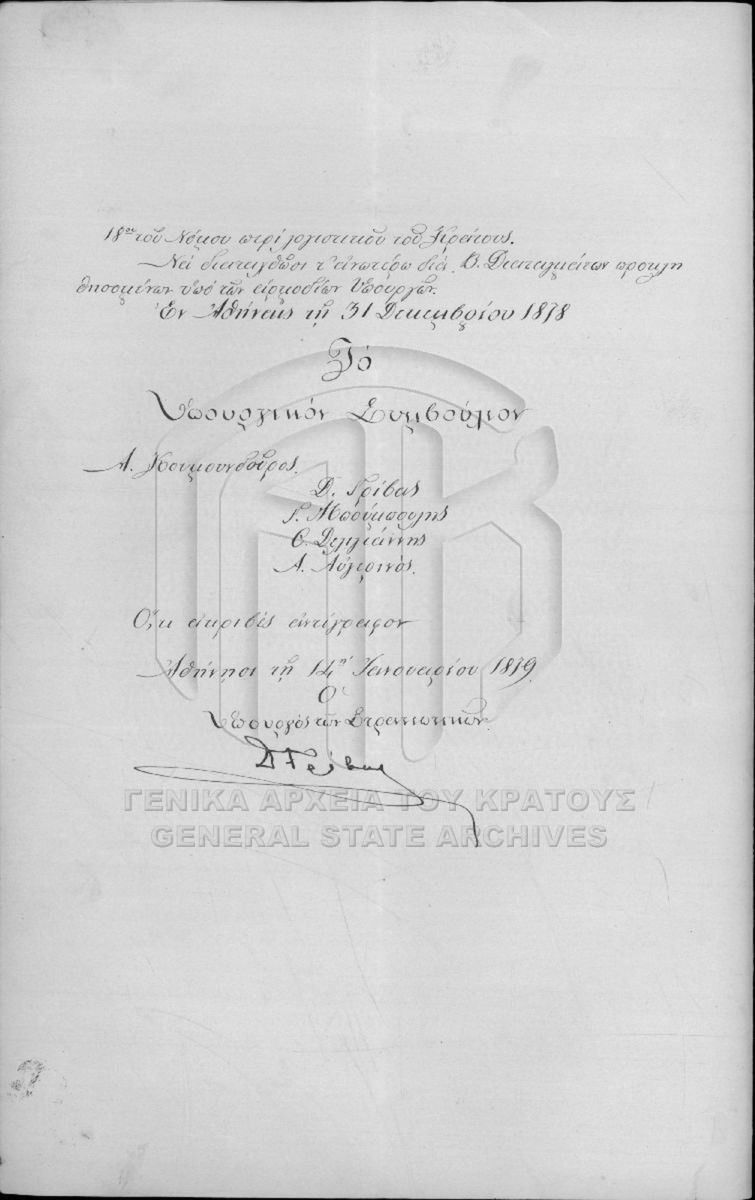 18ου τοῦ Νόμου περὶ λογιστικοῦ τοῦ Κράτους.
Νὰ διαταχθῶσι τ' ἀνωτέρω διὰ Β. Διαταγμάτων προκλη
θησομένων ὑπὸ τῶν ἁρμοδίων Ὑπουργῶν.
Ἐν Ἀθήναις τῇ 31 Δεκεμβρίου 1878
Τὸ
Ὑπουργικὸν Συμβούλιον
Α. Κουμουνδοῦρος.
Δ. Γρίβας
Γ. Μπούμπουλης
Θ. Δελιγιάννης
Α. Αὐγερινός.
Ὅτι ἀκριβὲς ἀντίγραφον
Ἀθήνησι τῇ 14ῃ Ἰανουαρίου 1879
Ὁ
Ὑπουργὸς τῶν Στρατιωτικῶν.
Δ Γρίβας
ΓΕΝΙΚΑ ΑΡΧΕΙΑ ΤΟΥ ΚΡΑΤΟΥΣ
GENERAL STATE ARCHIVES